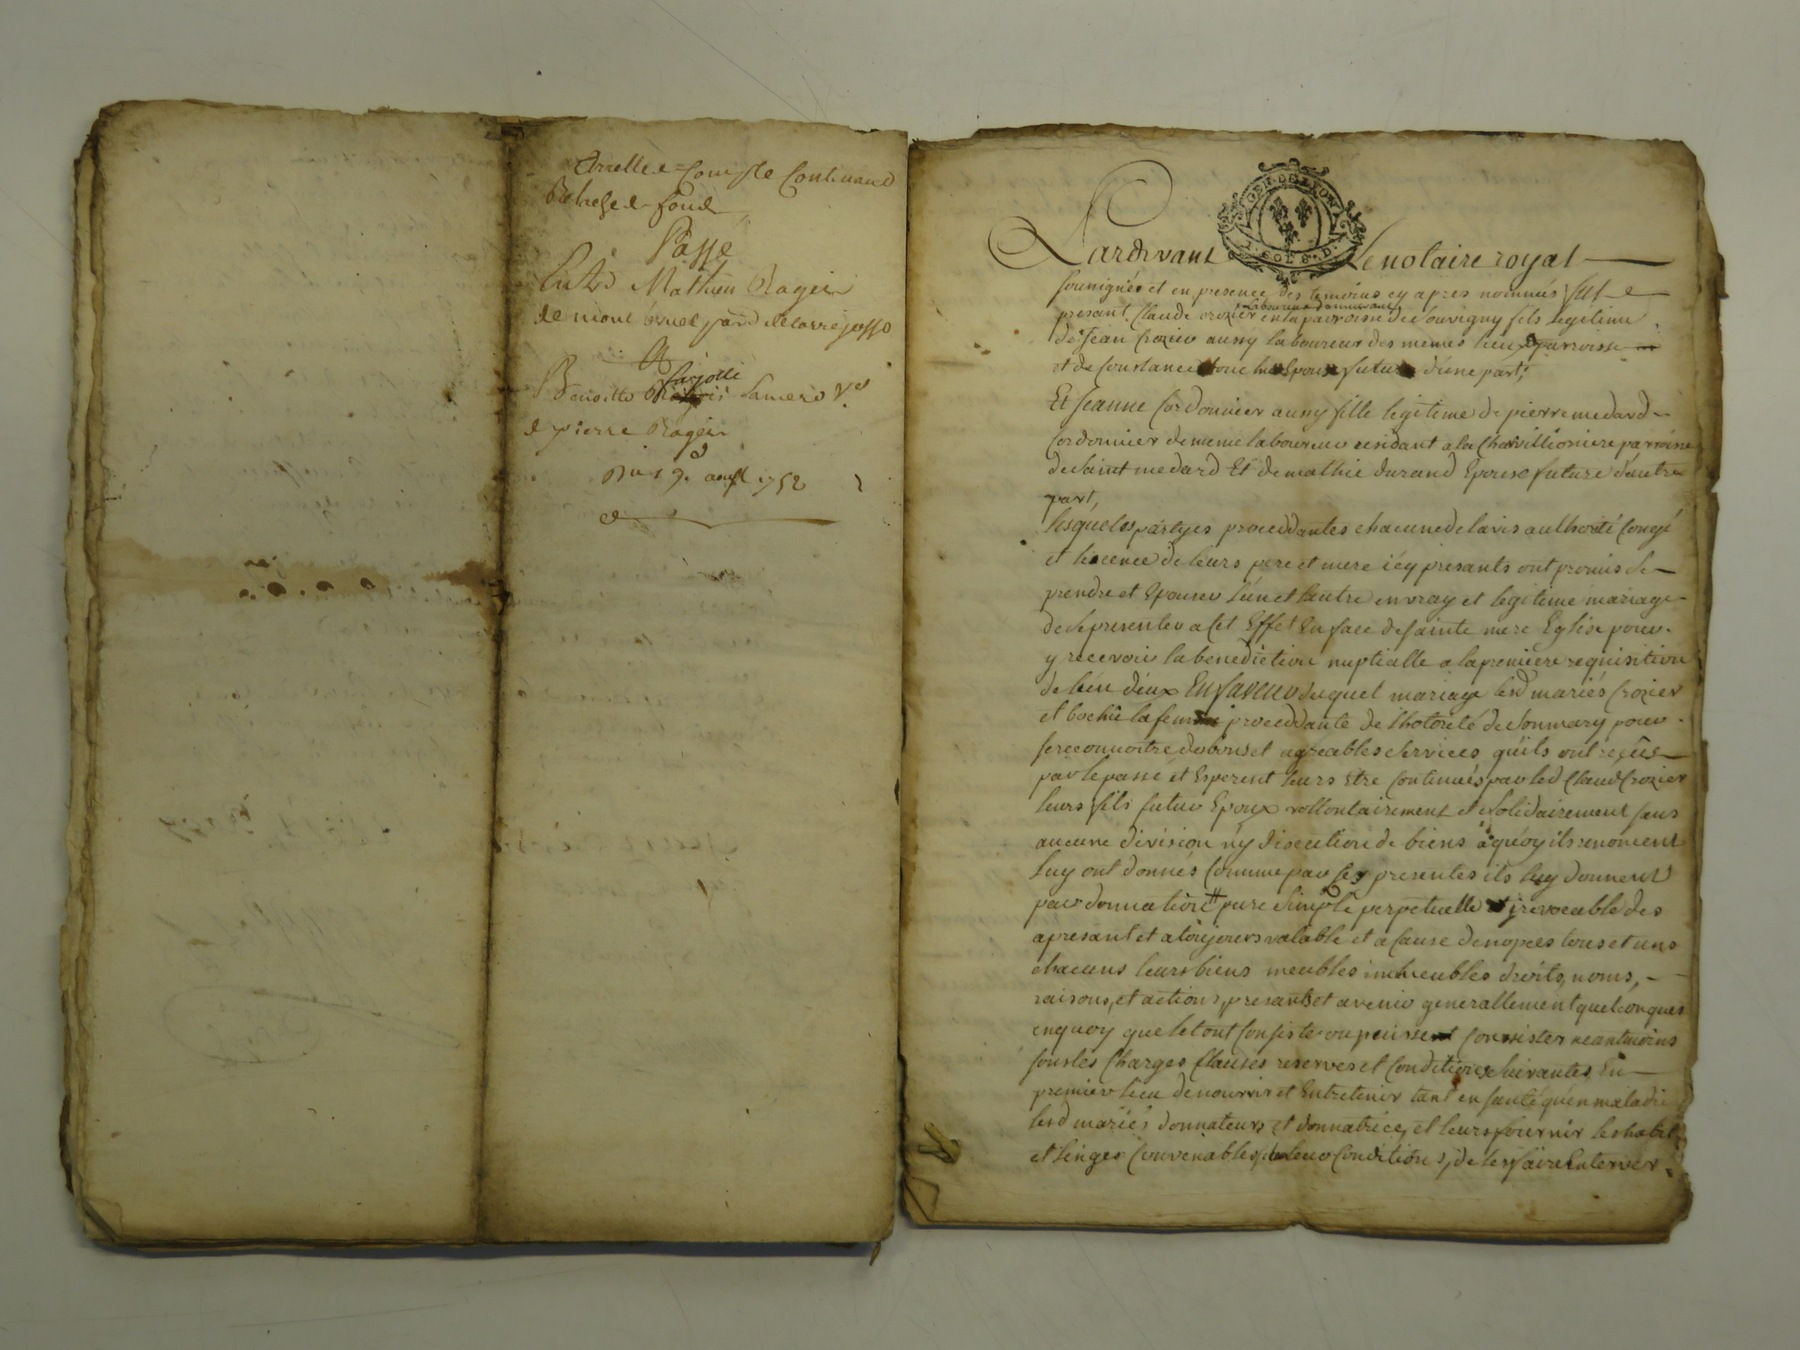 Arrellé de Compte Contenand
Relache de fond
Passé
Entre Mathieu Rageir
de mont
Et
farjotte
Benoitte Ve
de pierre Rageir
Du 19e aoust 1752
GEN. DE LYON
SOLS. D.
Pardevant Le notaire royal
soussignés et en presence des temoins cy apres nommés fut
laboureur demeurant
presant Claude Crozier en la parroisse de souvigny fils legitime
de Jean Crozier aussy laboureur des memes lieu & parroisse
et de Constance Epoux futur d'une part,
Et Jeanne Cordonnier aussy fille legitime de pierre medard
Cordonnier de meme laboureur residant a la Charvillioniere parroisse
de Saint medard Et de mathie durand Epouse future d'autre
part,
lesquelles partyes proceddantes chacune de lavis authorité Congé
et lissence de leurs pere et mere icy presants ont promis se
prendre et Epouser l'un et l'autre en vray et legitime mariage
de se presenter a Cet Effet En face de sainte mere Eglise pour
y recevoir la benediction nuptialle a la premiere requisition
de l'un deux En faveur duquel mariage lesd mariés Crozier
et la femme proceddante de l'hotorité de Son mary pour
se reconnoitre des bons et agreables Services qu'ils ont reçûs
par le passé et Esperent leurs Etre Continués par led Claude Crozier
leurs fils futur Epoux vollontairement et solidairement sans
aucune division n'y discution de biens a quoy ils renoncent
luy ont donnés Comme par les presentes ils luy donnent
par donnation pure Simple perpetuelle et irevocable des
apresant et a toujours valable et a Cause de nopces tous et uns
chacuns leurs biens meubles immeubles droits, noms,
raisons, et actions, presants et avenir generallement quelconques
enquoy que le tout Consiste ou puissent Consister neantmoins
sous les Charges Clauses reserves et Conditions Suivantes En
premier lieu de nourrir et Entretenir tant en santé qu'en maladie
lesd mariés donnateurs et donnatrice, et leurs fournir les habits
et linges Convenables a leur Condition, de les faire Enterrer